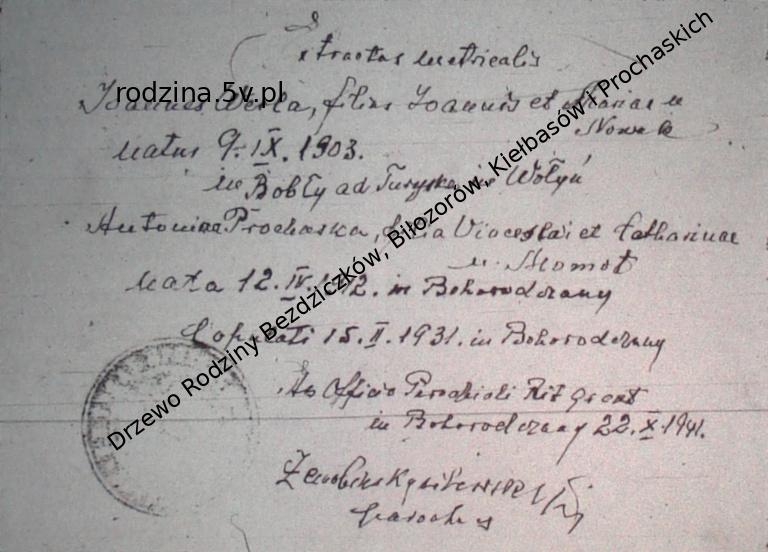 Extractus metricalis
rodzina.5v.pl
Joannes Werla, filius Joannis et Mariae n
Nowak
natus 9. IX. 1903.
in Bobły ad Turyska in Wołyń
Antonina Prochaska, filia Viaceslai et Catharinae
n. Momot
nata 12. IV. 1912. in Bohorodczany
Copulati 15. II. 1931. in Bohorodczany
Ab Officio Parochiali Rit graec
in Bohorodczany 22. X. 1941.
parochus
Drzewo Rodziny Bezdziczków, Biłozorów, Kiełbasów i Prochaskich